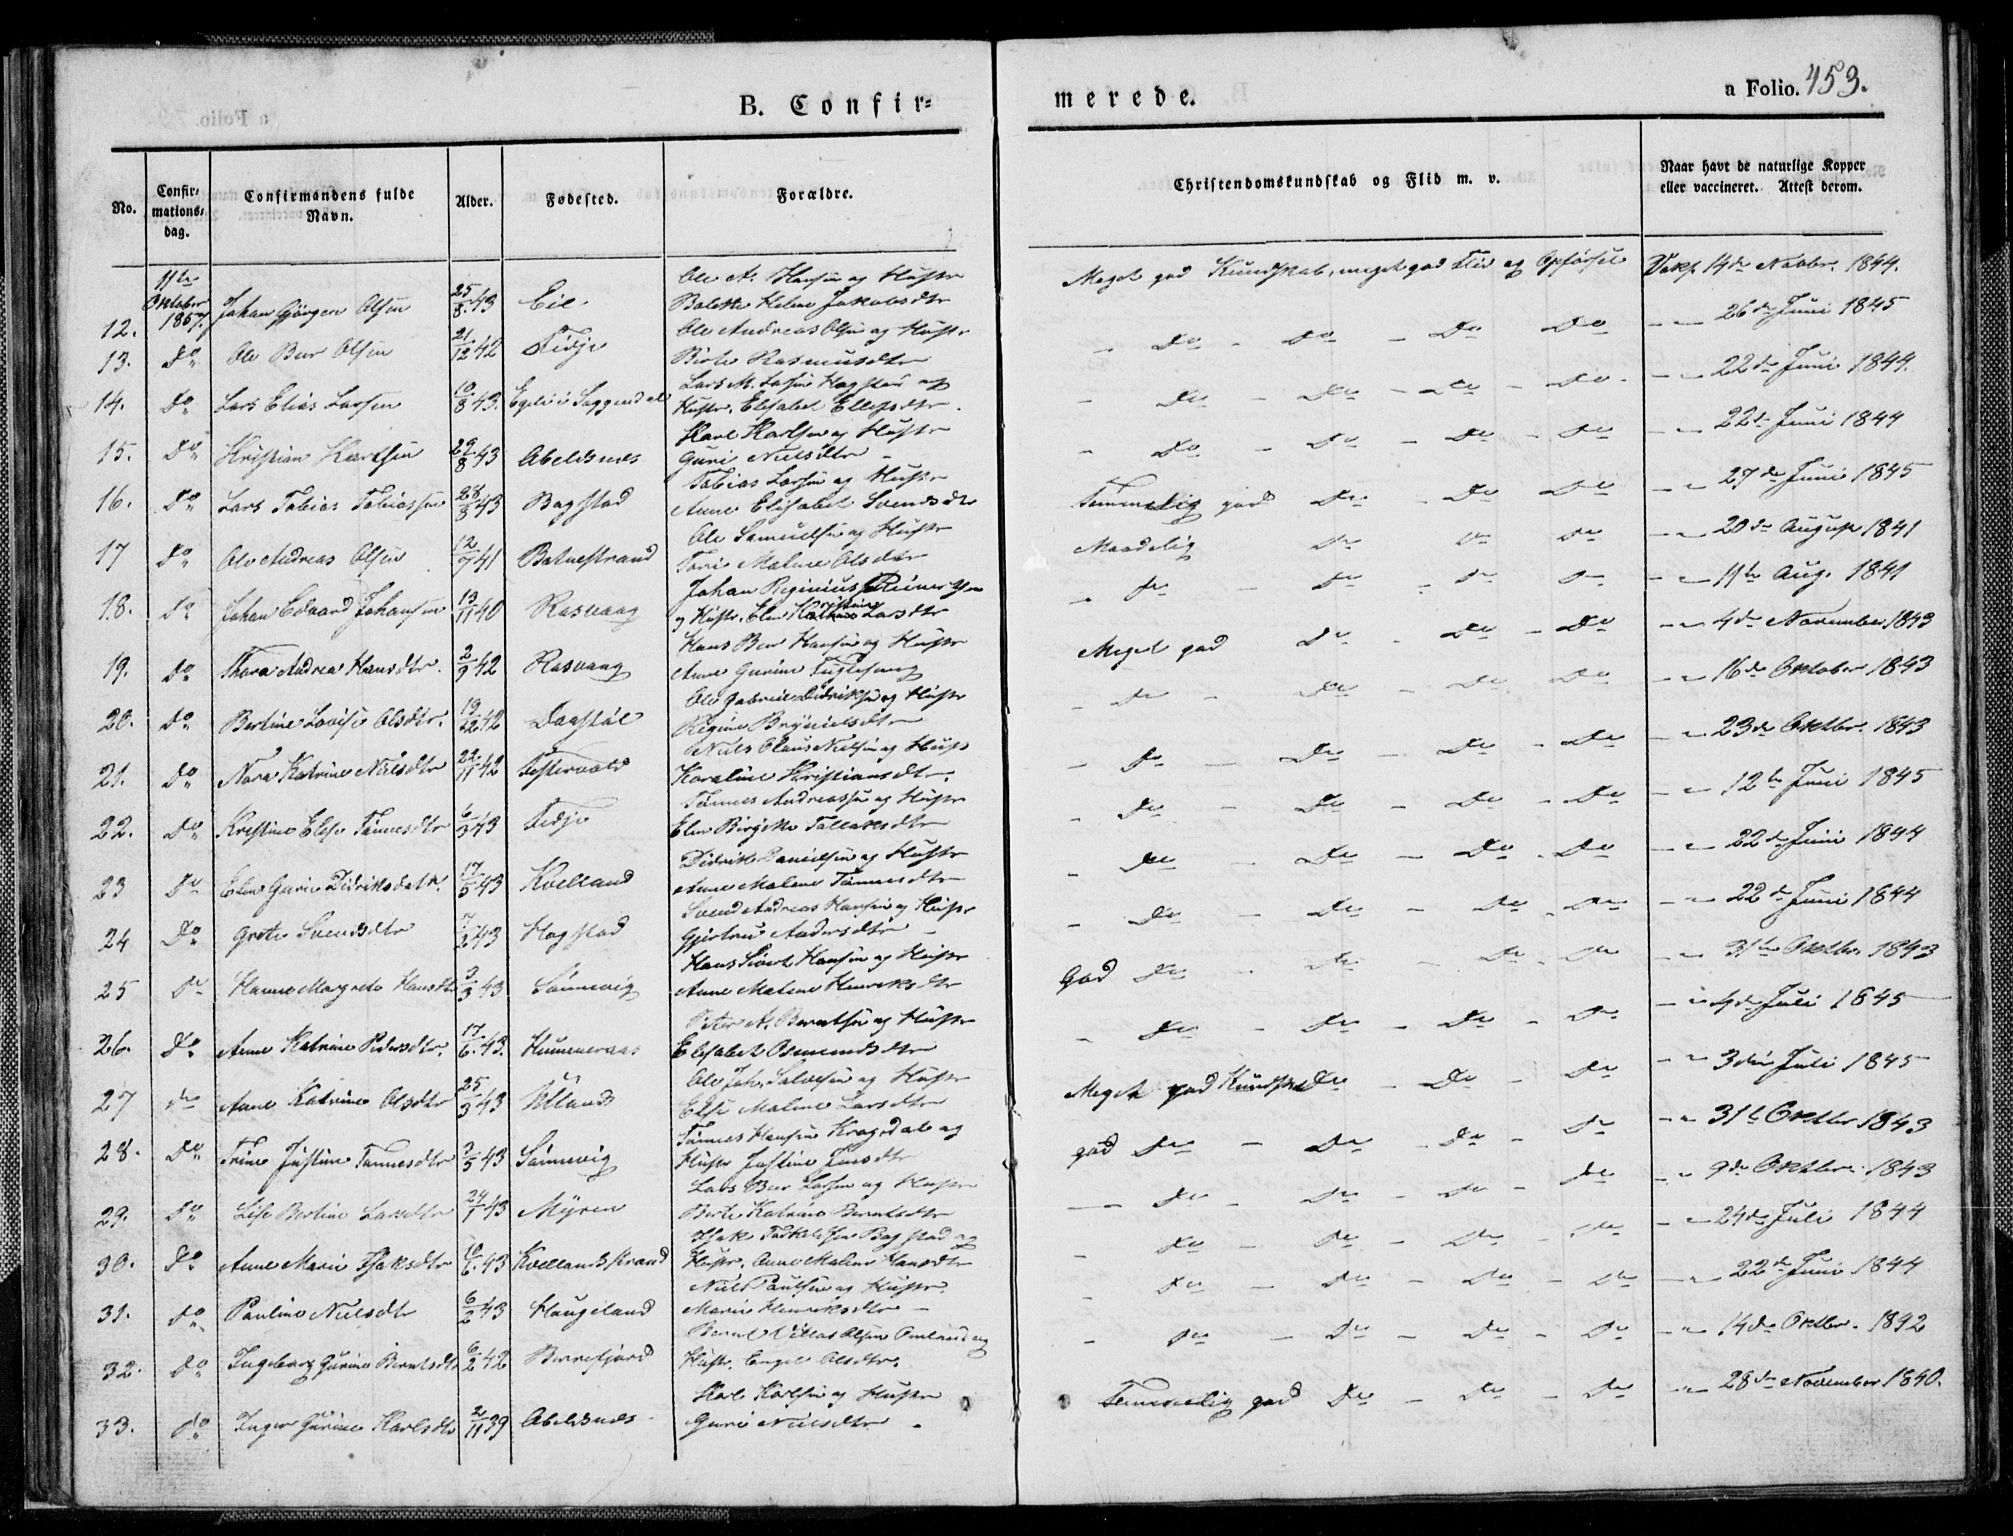 B. Confir=
merede.
a Folio. 453.
No.
Confir-
mations-
dag.
Confirmandens fulde
Navn.
Alder.
Fødested.
Forældre.
Christendomskundskab og Flid m. v.
Naar havt de naturlige Kopper
eller vaccineret. Attest derom.
12. 11te Oktober 1857. Johan Gjörgen Olsen 25/8 43 Eie Ole A. Hansen og Hustr Bolette Helene Jakobsdtr Meget god Kundskab, meget god Flid og Opførsel Vakc. 14de Novbr. 1844.
13. Do Ole Beer Olsen 21/12 42 Fidje Ole Andreas Olsen og Hustr. Birte Rasmusdtr - Do - Do - Do Do - 26de Juni 1845
14. Do Lars Elias Larsen 10/8 43. Egeli i Saggendal Lars M. Larsen Hogstad og Hustr. Elisabet Ellefsdtr. - Do - Do - Do - Do - 22de Juni 1844.
15. Do Kristian Karlsen 29/8 43 Abelsnes Karl Karlsen og Hustr Guri Nielsdtr - Do - Do - Do - Do - 22de Juni 1844
16. Do Lars Tobias Tobiassen 28/3 43 Bagstad Tobias Larsen og Hustr Anne Elisabet Svendsdtr Temmelig god Do - Do Do - 27de Juni 1845
17 Do Ole Andreas Olsen 12/7 41 Batnestrand Ole Samuelsen og Hustr Tori Malene Olsdtr Maadelig Do Do Do - 20de August 1841
18. Do Johan Edvard Johansen 13/11 40 Rasvaag Johan Reginius Reinertsen og Hustr. Elen Kristine Larsdtr - Do - Do - Do Do - 11te Aug. 1841
19. Do Thora Andrea Hansdtr. 2/9 42 Rasvaag Hans Beer Hansen og Hustr Anne Gurine Fuglesang Meget god Do - Do - Do - 4de November 1843
20. Do Bertine Lovise Olsdtr. 19/12 42 Daastøl Ole Gabriel Didriksen og Hustr Regine Bryniels dtr - Do - Do - Do Do - 16de Oktober 1843
21. Do Nora Katrine Nielsdtr 22/11 42 Nils Olaus Nielsen og Hustr Karoline Kristiansdtr. - Do - Do - Do - Do - 23de Oktbr. 1843
22. Do Kristine Elise Tønnesdtr 6/3 43 Fidje Tønnes Andreassen og Hustr Elen Birgitte Tollaksdtr - Do - Do - Do - Do - 12te Juni 1845
23 Do Elen Gurie Didriksdatr. 17/5 43 Kvelland Didrik Danielsen og Hustr Anne Malene Tønnesdtr - Do - Do - Do - Do - 22de Juni 1844
24 Do Grete Svendsdtr 7/2 43 Hogstad Svend Andreas Hansen og Hustr Gjertrue Andersdtr - Do - Do - Do - Do - 22de Juni 1844
25 Do Hanne Margrete Hansdtr 3/3 43 Sannevig Hans Sivert Hansen og Hustr Anne Malene Henriksdtr God Do - Do - Do - Do - 31te Oktbr. 1843
26. Do Anne Katrine Pedersdtr. 17/6 43. Hummeraas Peter A. Berntsen og Hustr Elisabet Osmundsdtr - Do - Do - Do - Do - 4de Juli 1845
27 Do Anne Katrine Olsdtr 25/3 43 Ole Joh. Salvesen og Hustr Else Malene Larsdtr Meget god Kundsk Do - Do - Do - 3die Juli 1845
28. Do Trine Justine Tønnesdtr 3/5 43 Sannevig Tønnes Hansen Kragedal og Hustr Justine Jensdtr god Do - Do - Do - Do - 31te Oktbr 1843
29. Do Lise Bertine Larsdtr 24/1 43 Myren Lars Beer Larsen og Hustr Berte Katrine Berntsdtr - Do - Do - Do - Do - 9de Oktbr. 1843
30. Do Anne Marie Isaksdtr 43 Kvellandstrand Isak Bagstad og Hustr. Anne Malene Hansdtr - Do - Do - Do - Do - 24de Juli 1844
31. Do Pauline Nielsdtr 6/2 43 Haugeland Niels Paulsen og Hustr. Marie Henriksdtr - Do - Do - Do - Do - 22de Juni 1844
32. Do Ingeborg Gurine Berntsdtr 6/2 42 Berrefjord Bernt Olsen Omland og Hustr. Engel Olsdtr. - Do - Do - Do - Do - 14de Oktbr. 1842
33. Do Inger Gurine Karlsdtr 2/11 39 Abelsnes Karl Karlsen og Hustr Guri Nielsdtr. Temmelig god Do - Do - Do - 28de November 1840.